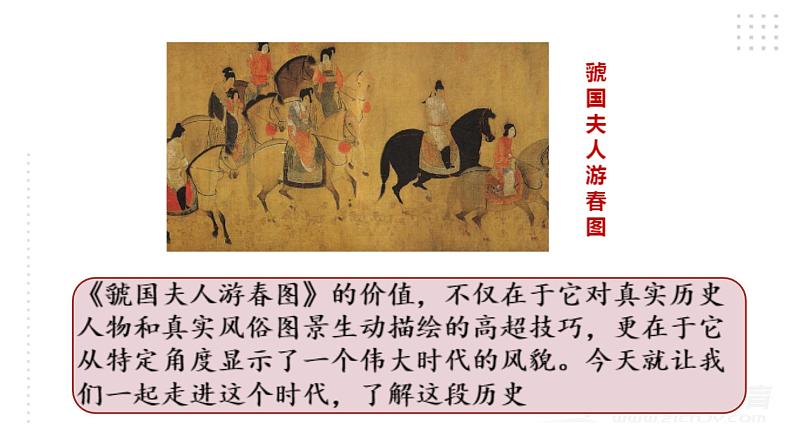 虢国夫人游春图
《虢国夫人游春图》的价值，不仅在于它对真实历史
人物和真实风俗图景生动描绘的高超技巧，更在于它
从特定角度显示了一个伟大时代的风貌。今天就让我
们一起走进这个时代，了解这段历史